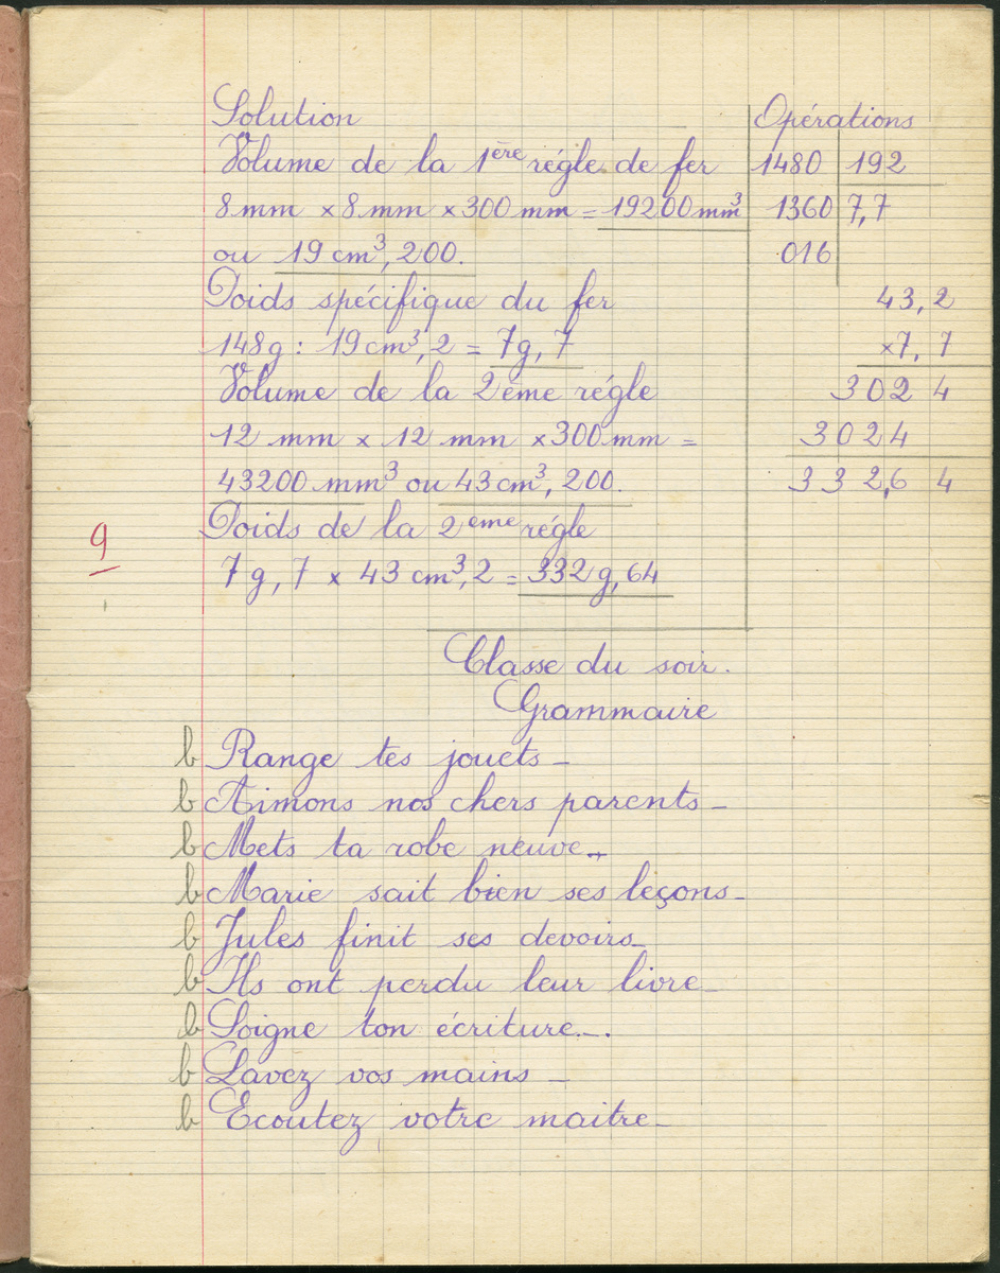 Solution
Volume de la 1ère régle de fer
8 mm x 8 mm x 300 mm = 19200 mm³
ou 19 cm³, 200.
Poids spécifique du fer
148g : 19 cm³, 2 = 7g, 7
Volume de la 2ème régle
12 mm x 12 mm x 300 mm =
43200 mm³ ou 43 cm³, 200.
Poids de la 2eme régle
7 g, 7 x 43 cm³, 2 = 332 g, 64
Opérations
1480 | 192
1360 | 7,7
016
43,2
x7,7
302 4
3024
332,6 4
9
Classe du soir.
Grammaire
b Range tes jouets _
b Aimons nos chers parents _
b Mets ta robe neuve _
b Marie sait bien ses leçons _
b Jules finit ses devoirs _
b Ils ont perdu leur livre _
b Soigne ton écriture. _.
b Lavez vos mains _
b Ecoutez votre maitre _